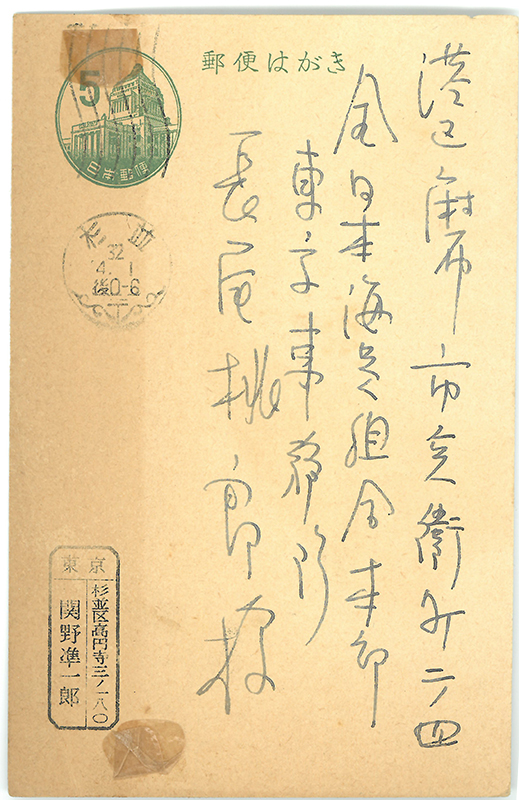 郵便はがき
5
日本郵便
杉並
32
4. 1
後0-6
港区麻布市兵衛町二ノ四
全日本海員組合本部
東京事務所
長尾桃郎様
東京
杉並区高円寺三ノ一八〇
関野凖一郎